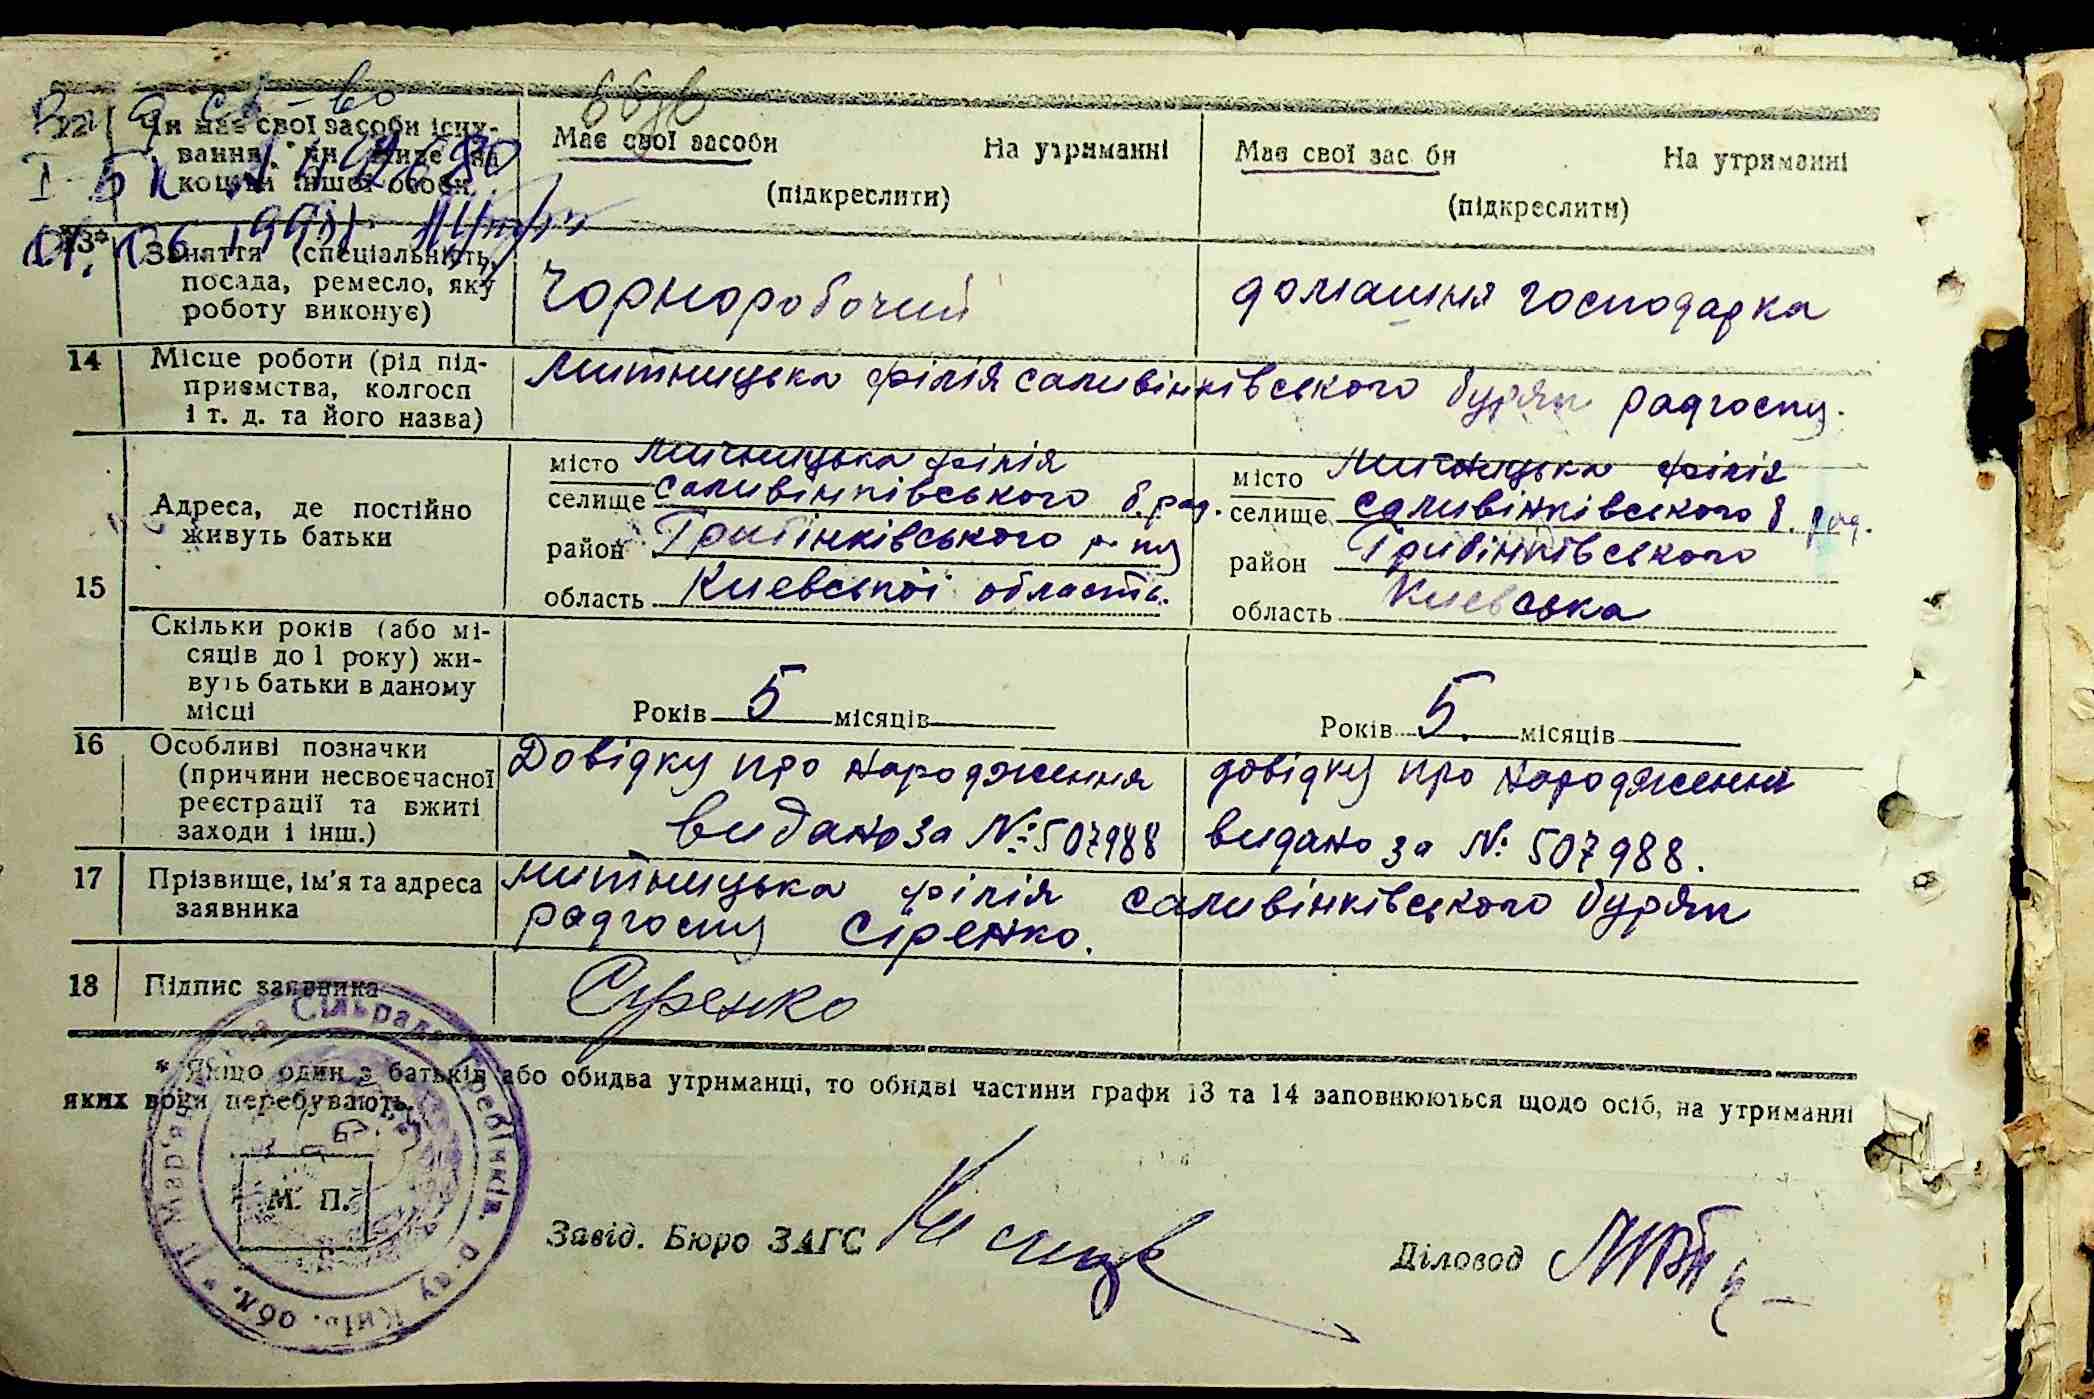 12 Чи має свої засоби існу-
вання, чи живе на
кошти іншої особи.
Має свої засоби На утриманні
(підкреслити)
Має свої засоби На утриманні
(підкреслити)
13* Заняття (спеціальність,
посада, ремесло, яку
роботу виконує)
Чорноробочий
домашня господарка
14 Місце роботи (рід під-
приємства, колгосп
і т. д. та його назва)
Митницька філія саливінківського буряк радгоспу.
15 Адреса, де постійно
живуть батьки
місто Митницька філія
селище саливінківського б. рад.
район Гребінківського р-ну
область Киевської області.
місто Митницька філія
селище саливінківського б. рад.
район Гребінківського
область Киевська
Скільки років (або мі-
сяців до 1 року) жи-
вуть батьки в даному
місці
Років 5 місяців
Років 5. місяців
16 Особливі позначки
(причини несвоєчасної
реєстрації та вжиті
заходи і інш.)
Довідку про народження
видано за №507988
довідку про народження
видано за № 507988.
17 Прізвище, ім'я та адреса
заявника
митницька філія саливінківського буряк
радгоспу Сіренко.
18 Підпис заявника
Сіренко
* Якщо один з батьків або обидва утриманці, то обидві частини графи 13 та 14 заповнюються щодо осіб, на утриманні
яких вони перебувають.
М. П.
Завід. Бюро ЗАГС
Діловод